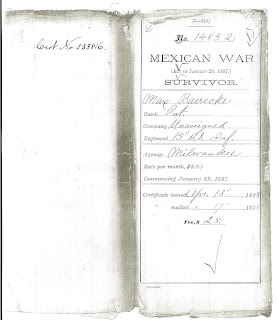 Cert. No. 
(3-343.)
No. 14852
MEXICAN WAR
(Act of January 29, 1887.)
SURVIVOR.
Max Baerecke
Rank Pvt.
Company Unassigned
Regiment 15" U.S. Inf.
Agency: Milwaukee
Rate per month, $8.00
Commencing January 29, 1887.
Certificate issued Apr. 15, 188
" mailed " 17, 188
Fee, $ 25